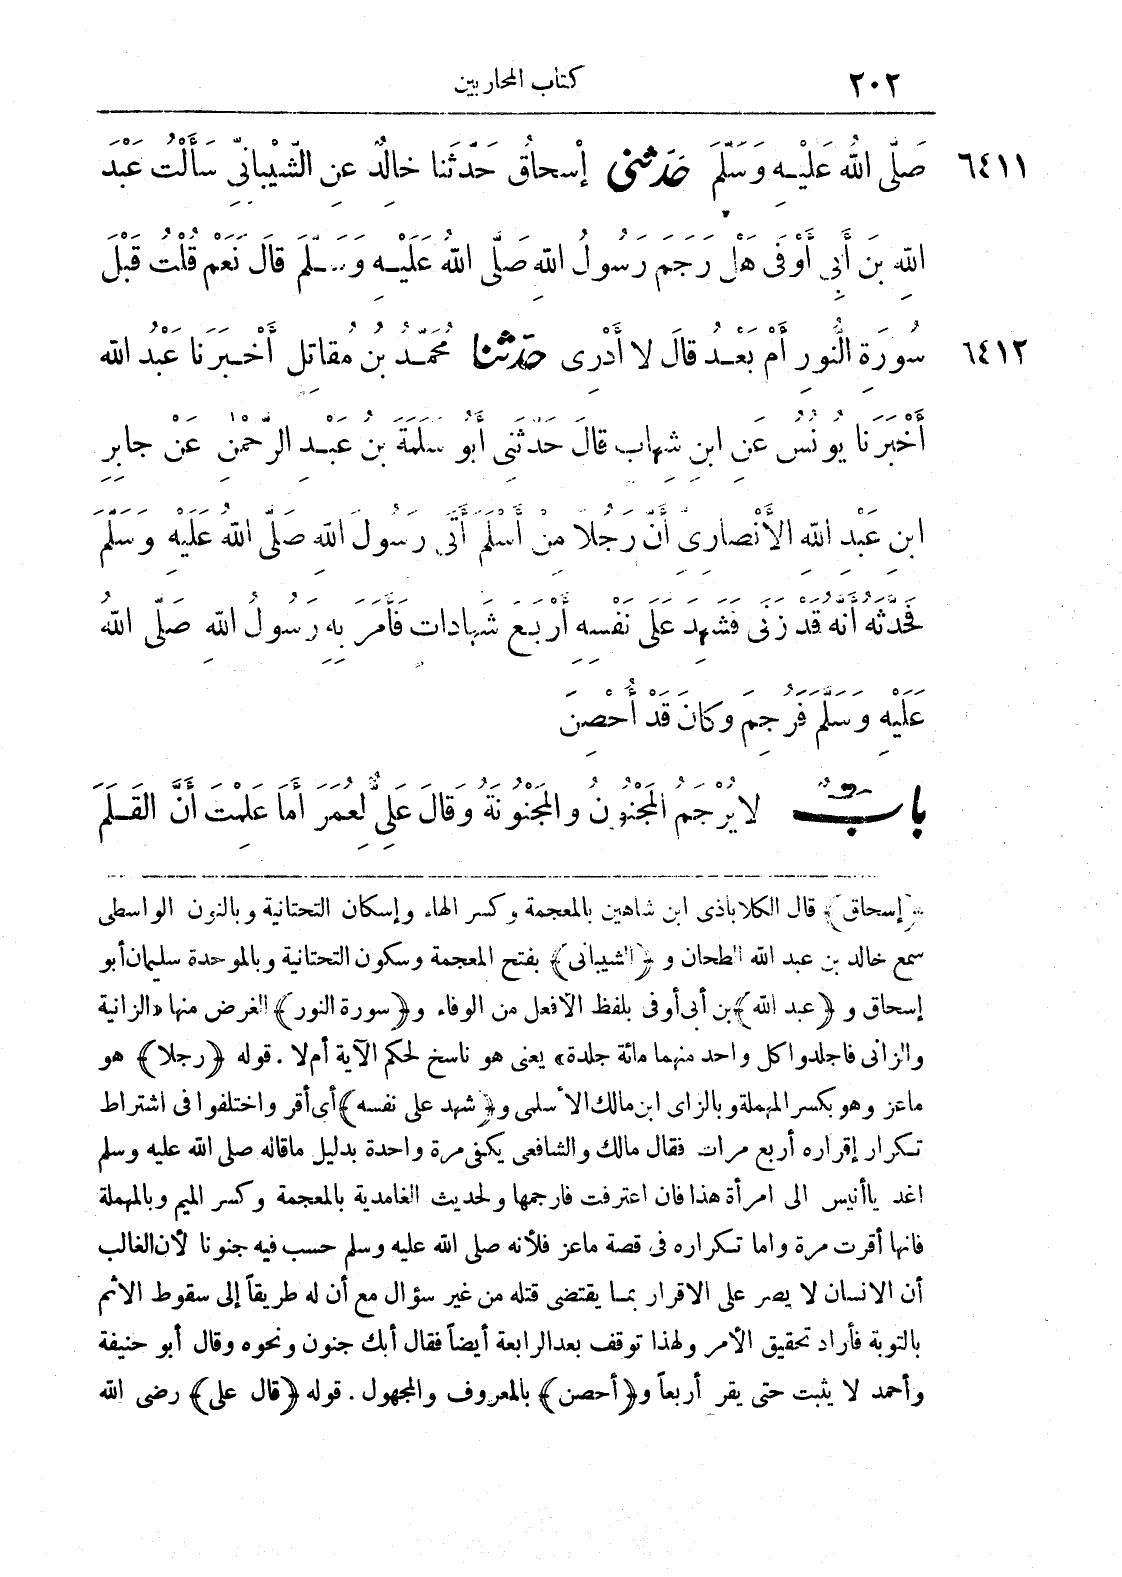 ٢٠٢ كتاب المحاربين
٦٤١١ صَلَّى اللهُ عَلَيْهِ وَسَلَّمَ حَدَّثَنِى إِسْحاقُ حَدَّثَنا خالِدٌ عَنِ الشَّيْبانِيِّ سَأَلْتُ عَبْدَ
اللهِ بنَ أَبِي أَوْفَى هَلْ رَجَمَ رَسُولُ اللهِ صَلَّى اللهُ عَلَيْهِ وَسَلَّمَ قَالَ نَعَمْ قُلْتُ قَبْلَ
٦٤١٢ سُورَةِ النُّورِ أَمْ بَعْدُ قالَ لا أَدْرِى حَدَّثَنا مُحَمَّدُ بن مُقاتِل أَخْبَرَنا عبْدُ الله
أَخْبَرَنا يُونُسُ عَنِ ابنِ شِهاب قالَ حَدَّثَنِى أَبُو سَلَمَةَ بنُ عَبْدِ الرَّحْمٰنِ عَنْ جابِرِ
ابنِ عَبْدِ اللهِ الأَنْصارِىِّ أَنَّ رَجُلاً مِنْ أَسْلَمَ أَتَى رَسُولَ اللهِ صَلَّى اللهُ عَلَيْهِ وَسَلَّمَ
فَحَدَّثَهُ أَنَّهُ قَدْ زَنَى فَشَهِدَ عَلَى نَفْسِهِ أَرْبَعَ شَهادات فَأَمَرَ بِهِ رَسُولُ اللهِ صَلَّى اللهُ
عَلَيْهِ وَسَلَّمَ فَرُجِمَ وَكانَ قَدْ أُحْصِنَ
بابٌ لا يُرْجَمُ المَجْنُونُ وَالمَجْنُونَةُ وَقالَ عَلِيٌّ لِعُمَرَ أَما عَلِمْتَ أَنَّ القَلَمَ
﴿إسحاق﴾ قال الكلاباذى ابن شاهين بالمعجمة وكسر الهاء وإسكان التحتانية وبالنون الواسطى
سمع خالد بن عبد الله الطحان و ﴿الشيبانى﴾ بفتح المعجمة وسكون التحتانية وبالموحدة سليمان أبو
إسحاق و ﴿عبد الله﴾ بن أبى أوفى بلفظ الأفعل من الوفاء و ﴿سورة النور﴾ الغرض منها «الزانية
والزانى فاجلدوا كل واحد منهما مائة جلدة» يعنى هو ناسخ لحكم الآية أم لا . قوله ﴿رجلا﴾ هو
ماعز وهو بكسر المهملة وبالزاى ابن مالك الأسلمى و ﴿شهد على نفسه﴾ أى أقر واختلفوا فى اشتراط
تكرار إقراره أربع مرات فقال مالك والشافعى يكفى مرة واحدة بدليل ماقاله صلى الله عليه وسلم
اغد ياأنيس الى امرأة هذا فان اعترفت فارجمها ولحديث الغامدية بالمعجمة وكسر الميم وبالمهملة
فانها أقرت مرة واما تكراره فى قصة ماعز فلأنه صلى الله عليه وسلم حسب فيه جنونا لأن الغالب
أن الانسان لا يصر على الاقرار بما يقتضى قتله من غير سؤال مع أن له طريقاً إلى سقوط الاثم
بالتوبة فأراد تحقيق الأمر ولهذا توقف بعد الرابعة أيضاً فقال أبك جنون ونحوه وقال أبو حنيفة
وأحمد لا يثبت حتى يقر أربعاً و ﴿أحصن﴾ بالمعروف والمجهول . قوله ﴿قال على﴾ رضى الله